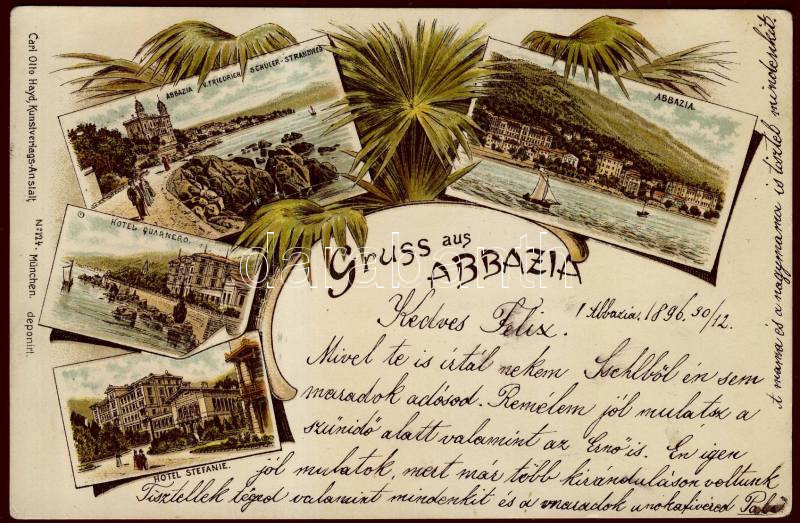 Carl Otto Hayd, Kunstverlags-Anstalt, No 1724. München. deponirt.
ABBAZIA V. FRIEDRICH SCHÜLER-STRANDWEG
ABBAZIA.
HOTEL QUARNERO.
HOTEL STEFANIE.
Gruss aus
ABBAZIA
darabanth
Abbazia, 1896. 30/12.
Kedves Felix.
Mivel te is írtál nekem Ischlből én sem
maradok adósod. Remélem jól mulatsz a
szünidő alatt valamint az Ernő is. Én igen
jól mulatok, mert már több kiránduláson voltunk
Tisztellek téged valamint mindenkit és a maradok unokafivéred Pali
A mama és a nagymama is tisztel mindenkit.